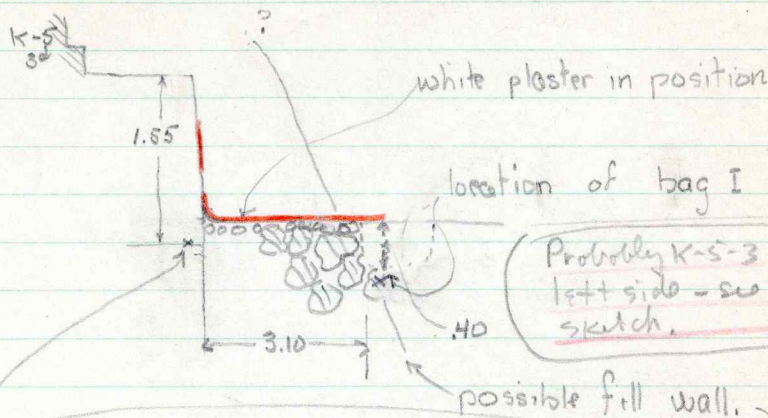 ?
K-5
3d
white plaster in position
1.55
location of bag I
Probably K-5-3
left side - see
sketch.
.40
3.10
possible fill wall.